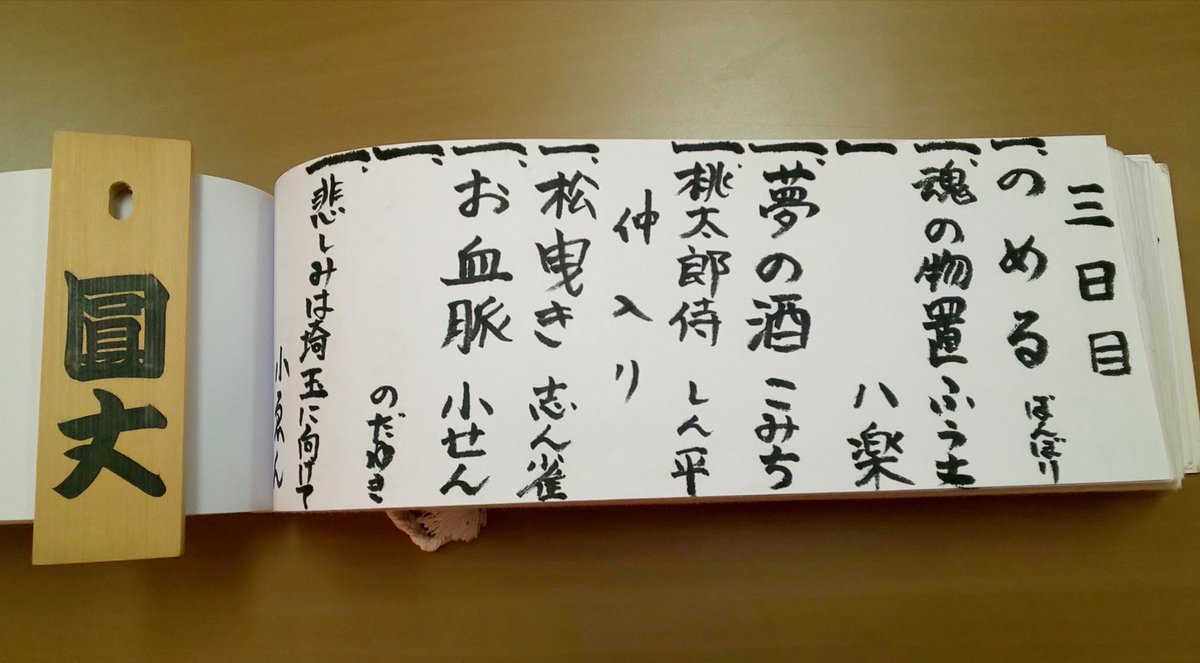 三日目
一、のめる ぼんぼり
一、魂の物置 ふう丈
一 八楽
一、夢の酒 こみち
一、桃太郎侍 しん平
仲入り
一、松曳き 志ん雀
一、お血脈 小せん
一、のだゆき
一、悲しみは埼玉に向けて
小ゑん
圓丈